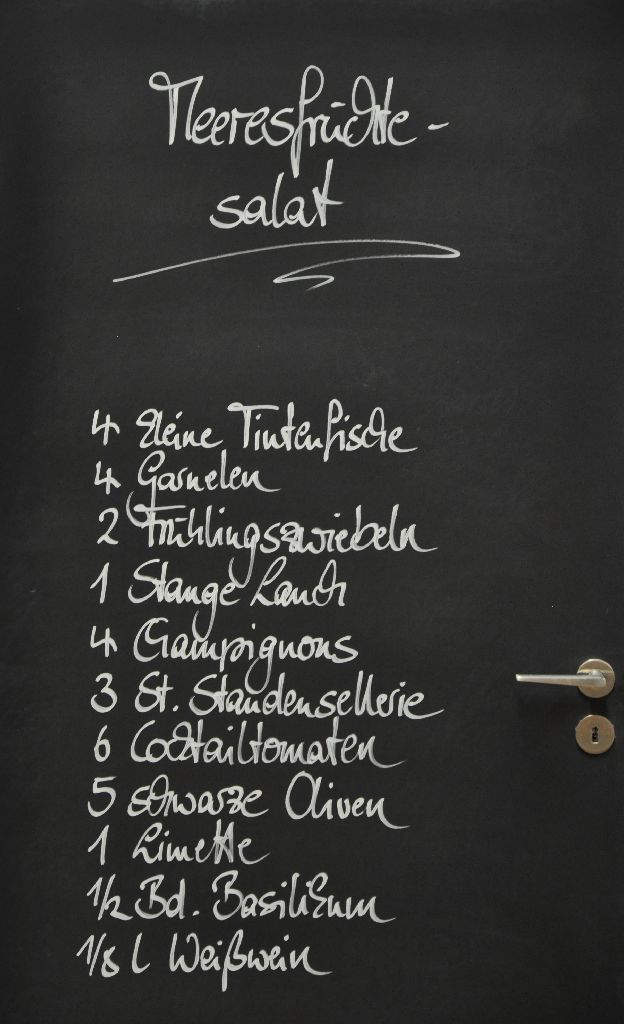 Meeresfrüchte-
salat
4 kleine Tintenfische
4 Garnelen
2 Frühlingszwiebeln
1 Stange Lauch
4 Champignons
3 St. Staudensellerie
6 Cocktailtomaten
5 schwarze Oliven
1 Limette
1/2 Bd. Basilikum
1/8 l Weißwein